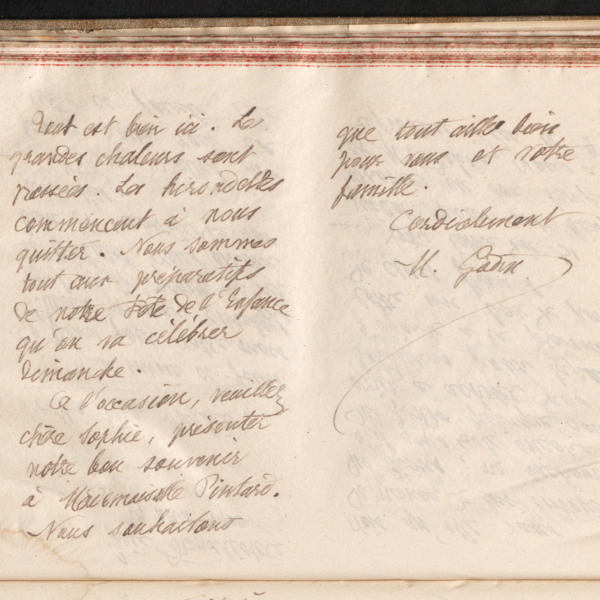 Tout est bien ici. Les
grandes chaleurs sont
passées. Les hirondelles
commencent à nous
quitter. Nous sommes
tout aux préparatifs
de notre Fête de l'Enfance
qu'on va célébrer
dimanche.
A l'occasion, veuillez
chère Sophie, présenter
notre bon souvenir
à Mademoiselle Pintard.
Nous souhaitons
que tout aille bien
pour vous et votre
famille.
Cordialement
M. Godin